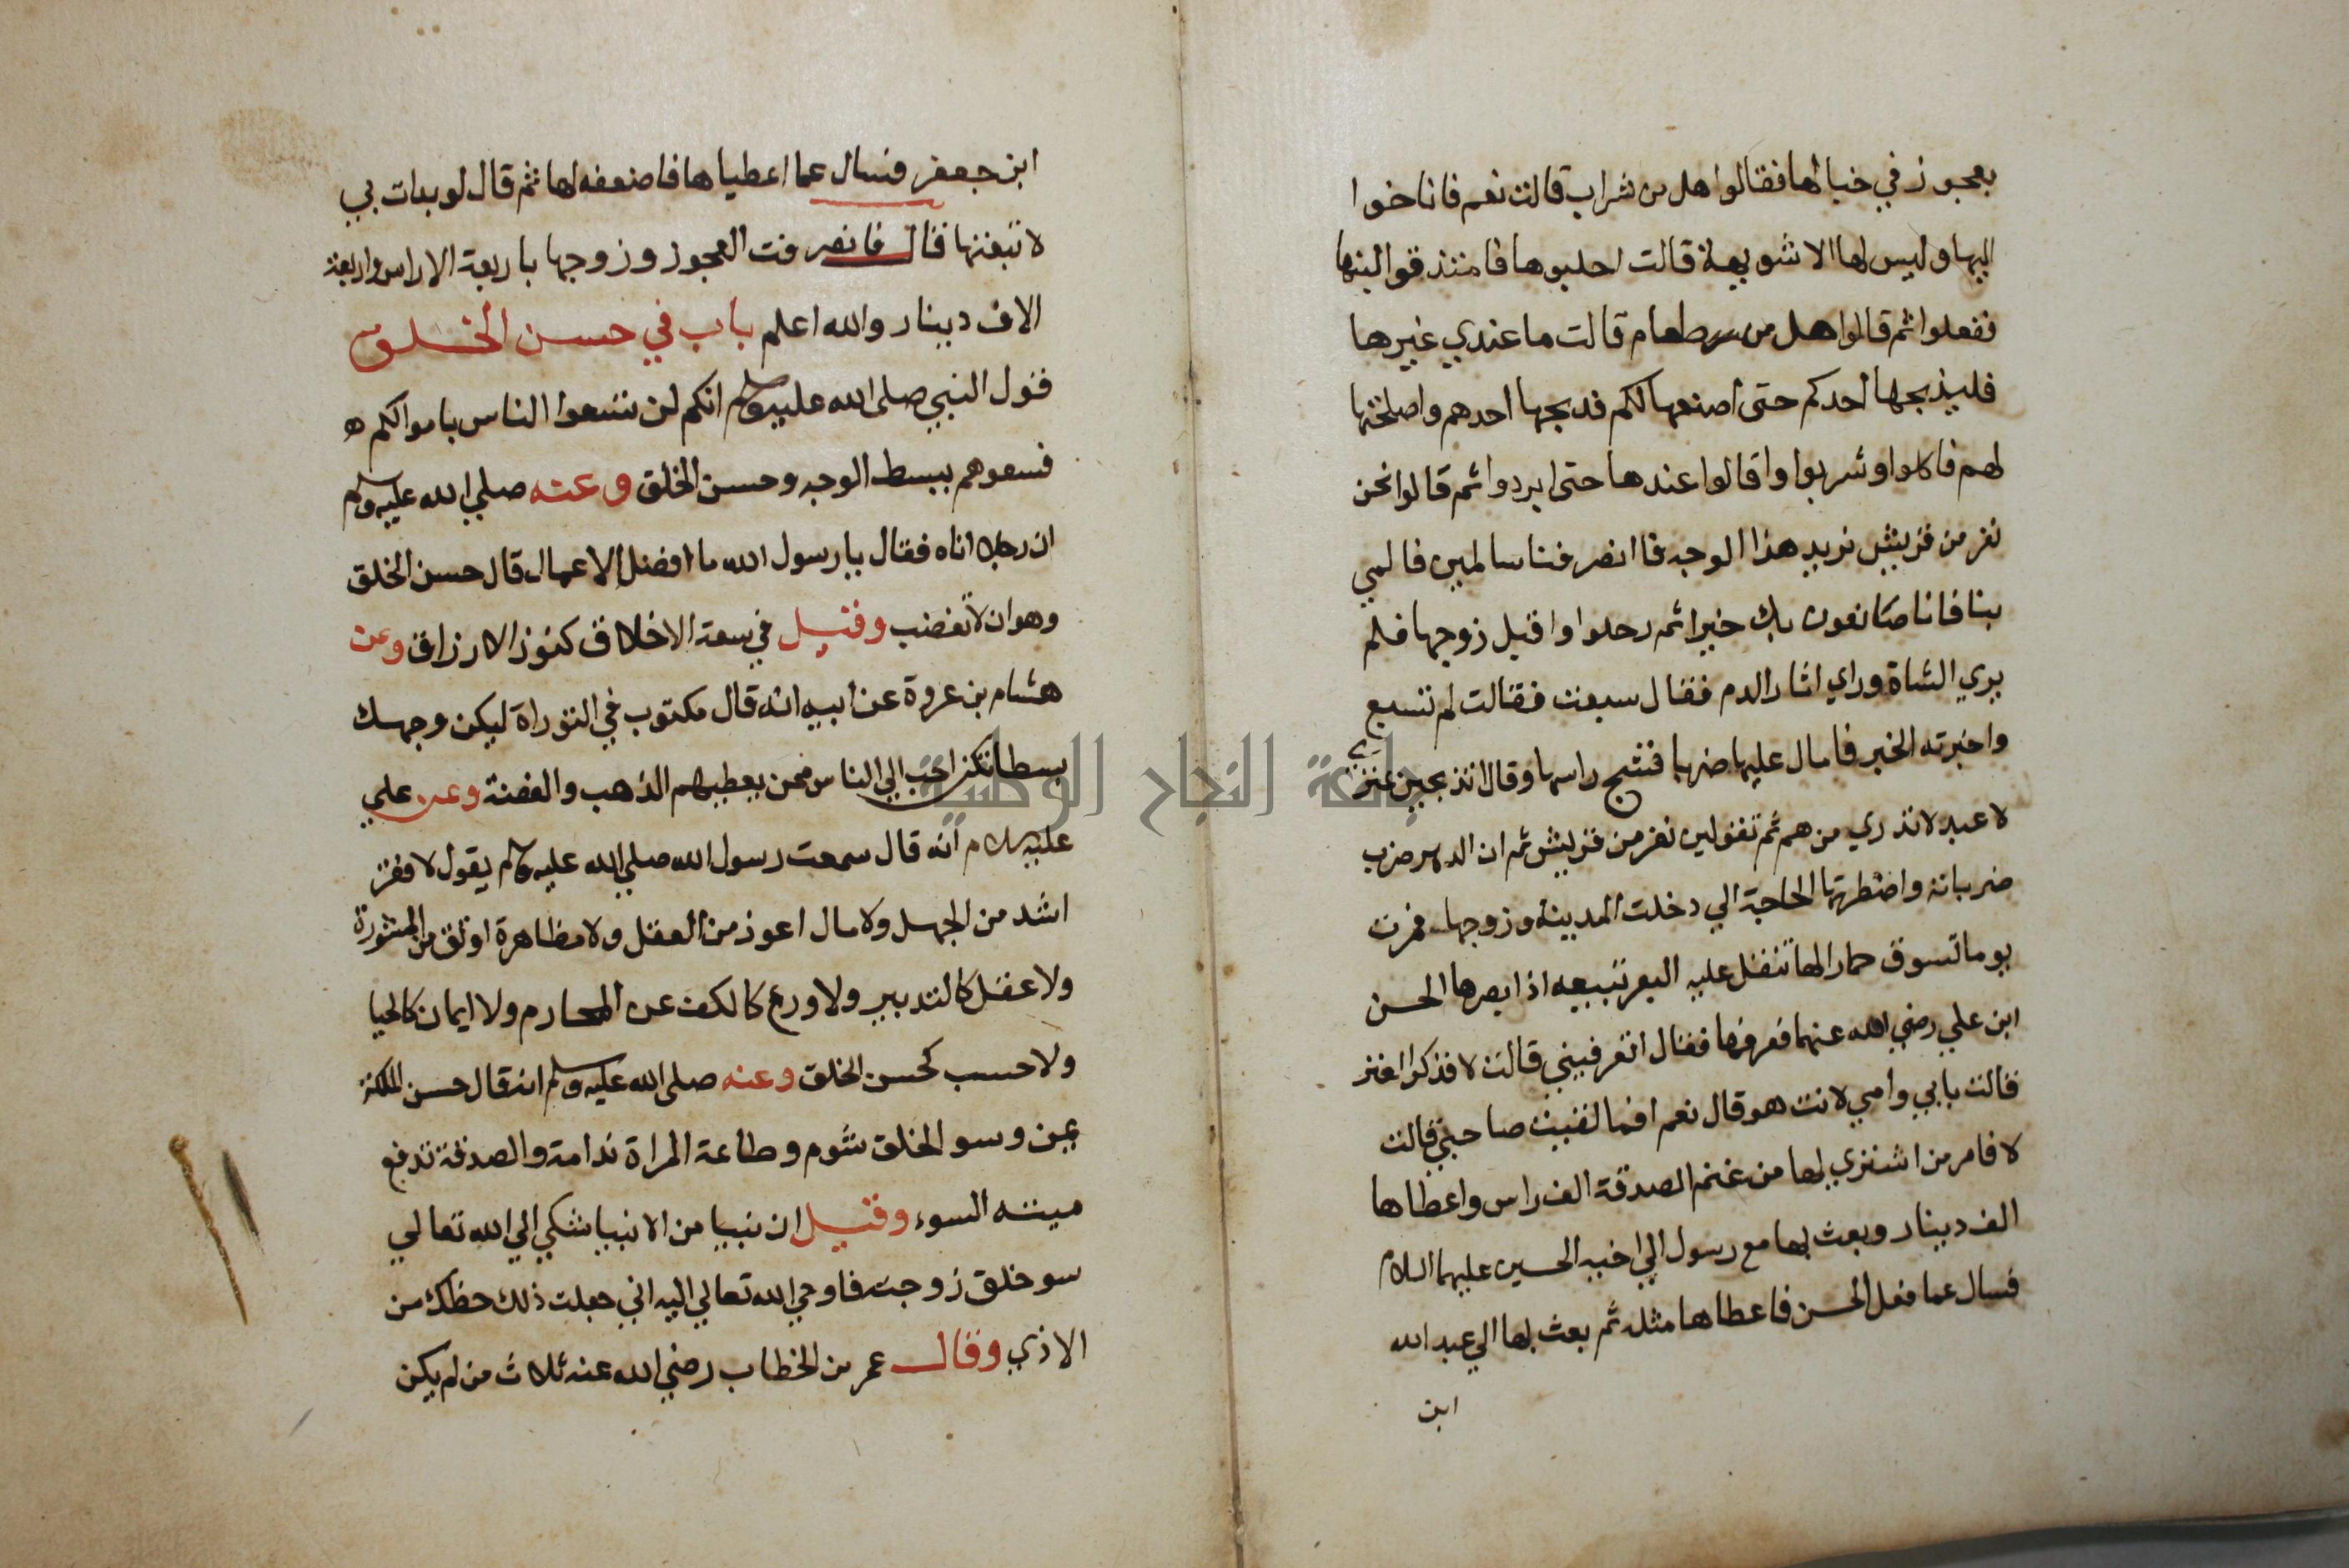 بعجوز في خبا لها فقالوا هل من شراب قالت نعم فاناخوا
اليها وليس لها الا شويهة قالت احلبوها فامتذقوا لبنها
ففعلوا ثم قالوا هل من طعام قالت ما عندي غيرها
فليذبحها احدكم حتى اصنعها لكم فدبحها احدهم واصلحتها
لهم فاكلوا وشربوا واقالوا عندها حتى ابردوا ثم قالوا نحن
نفر من قريش نريد هذا الوجه فاانصرفنا سالمين فالمي
بنا فانا صانعون بك خيرا ثم رحلوا واقبل زوجها فلم
يري الشاة وراي اثار الدم فقال سبعت فقالت لم تسبع
واخبرته الخبر فامال عليها ضربا فشج راسها وقال اتذبحين عنزي
لا عبد لا تدري من هم ثم تقولين نفر من قريش ثم ان الدهر ضرب
ضرباته واضطرتها الحاجة الي دخلت المدينة وزوجها فمرت
يوما تسوق حمارا لها تنقل عليه البعر تبيعه اذا بصرها الحسن
ابن علي رضي الله عنهما فعرفها فقال اتعرفيني قالت لا فذكرا لعنز
قالت بابي وامي لانت هو قال نعم افما لقيت صاحبي قالت
لا فامر من اشتري لها من غنم الصدقة الف راس واعطاها
الف دينار وبعث بها مع رسول الي اخيه الحسين عليهما السلام
فسال عما فعل الحسن فاعطاها مثله ثم بعث بها الي عبد الله
ابن
ابن جعفر فسال عما اعطياها فاضعفه لها ثم قال لو بدات بي
لاتبعتها قال فانصرفت العجوز وزوجها باربعة الاراس واربعة
الاف دينار والله اعلم باب في حسن الخلق
قول النبي صلى الله عليه وسلم انكم لن تسعوا الناس باموالكم ه
فسعوهم ببسط الوجه وحسن الخلق وعنه صلي الله عليه وسلم
ان رجلا اتاه فقال يا رسول الله ما افضل الاعمال قال حسن الخلق
وهو ان لا تغضب وقيل في سعة الاخلاق كنوز الارزاق وعن
هشام بن عروة عن ابيه انه قال مكتوب في التوراة ليكن وجهك
بسطا تكن احب الي الناس ممن يعطيهم الذهب والفضة وعن علي
عليه السلام انه قال سمعت رسول الله صلي الله عليه وسلم يقول لا فقر
اشد من الجهل ولا مال اعوذ من العقل ولا مظاهرة اوثق من المشورة
ولا عقل كالتدبير ولا ورع كالكف عن المحارم ولا ايمان كالحيا
ولا حسب كحسن الخلق وعنه صلى الله عليه وسلم انه قال حسن الملكة
يمن وسو الخلق شوم وطاعة المراة ندامة والصدقة تدفع
ميتة السوء وقيل ان نبيا من الانبيا شكي الي الله تعالي
سو خلق زوجته فاوحي الله تعالي اليه اني جعلت ذلك حظك من
الاذي وقال عمر بن الخطاب رضي الله عنه ثلاث من لم يكن
جامعة النجاح الوطنية